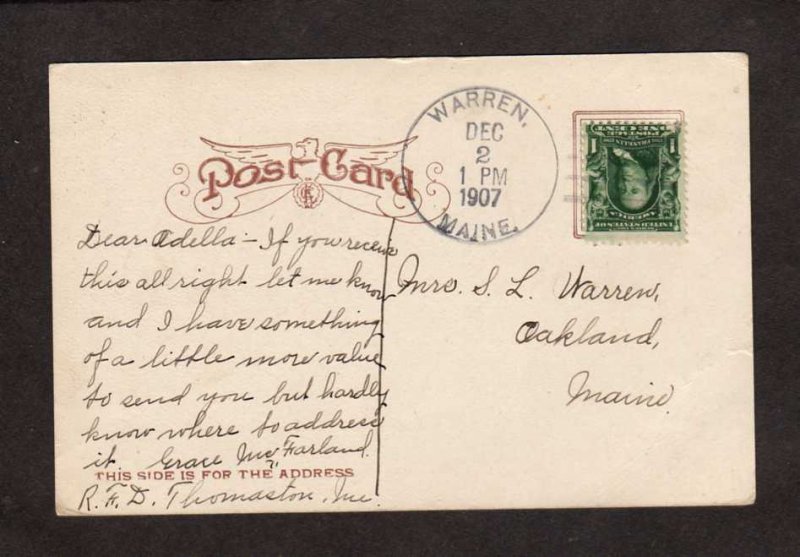 WARREN,
DEC
2
1 PM
1907
MAINE.
Post Card
Dear Odella - If you receive
this all right let me know
and I have something
of a little more value
to send you but hardly
know where to address
it Grace McFarland
THIS SIDE IS FOR THE ADDRESS
R.F.D. Thomaston, Me.
Mrs. S. L. Warren,
Oakland,
Maine
UNITED STATES OF
AMERICA
1 1
ONE CENT